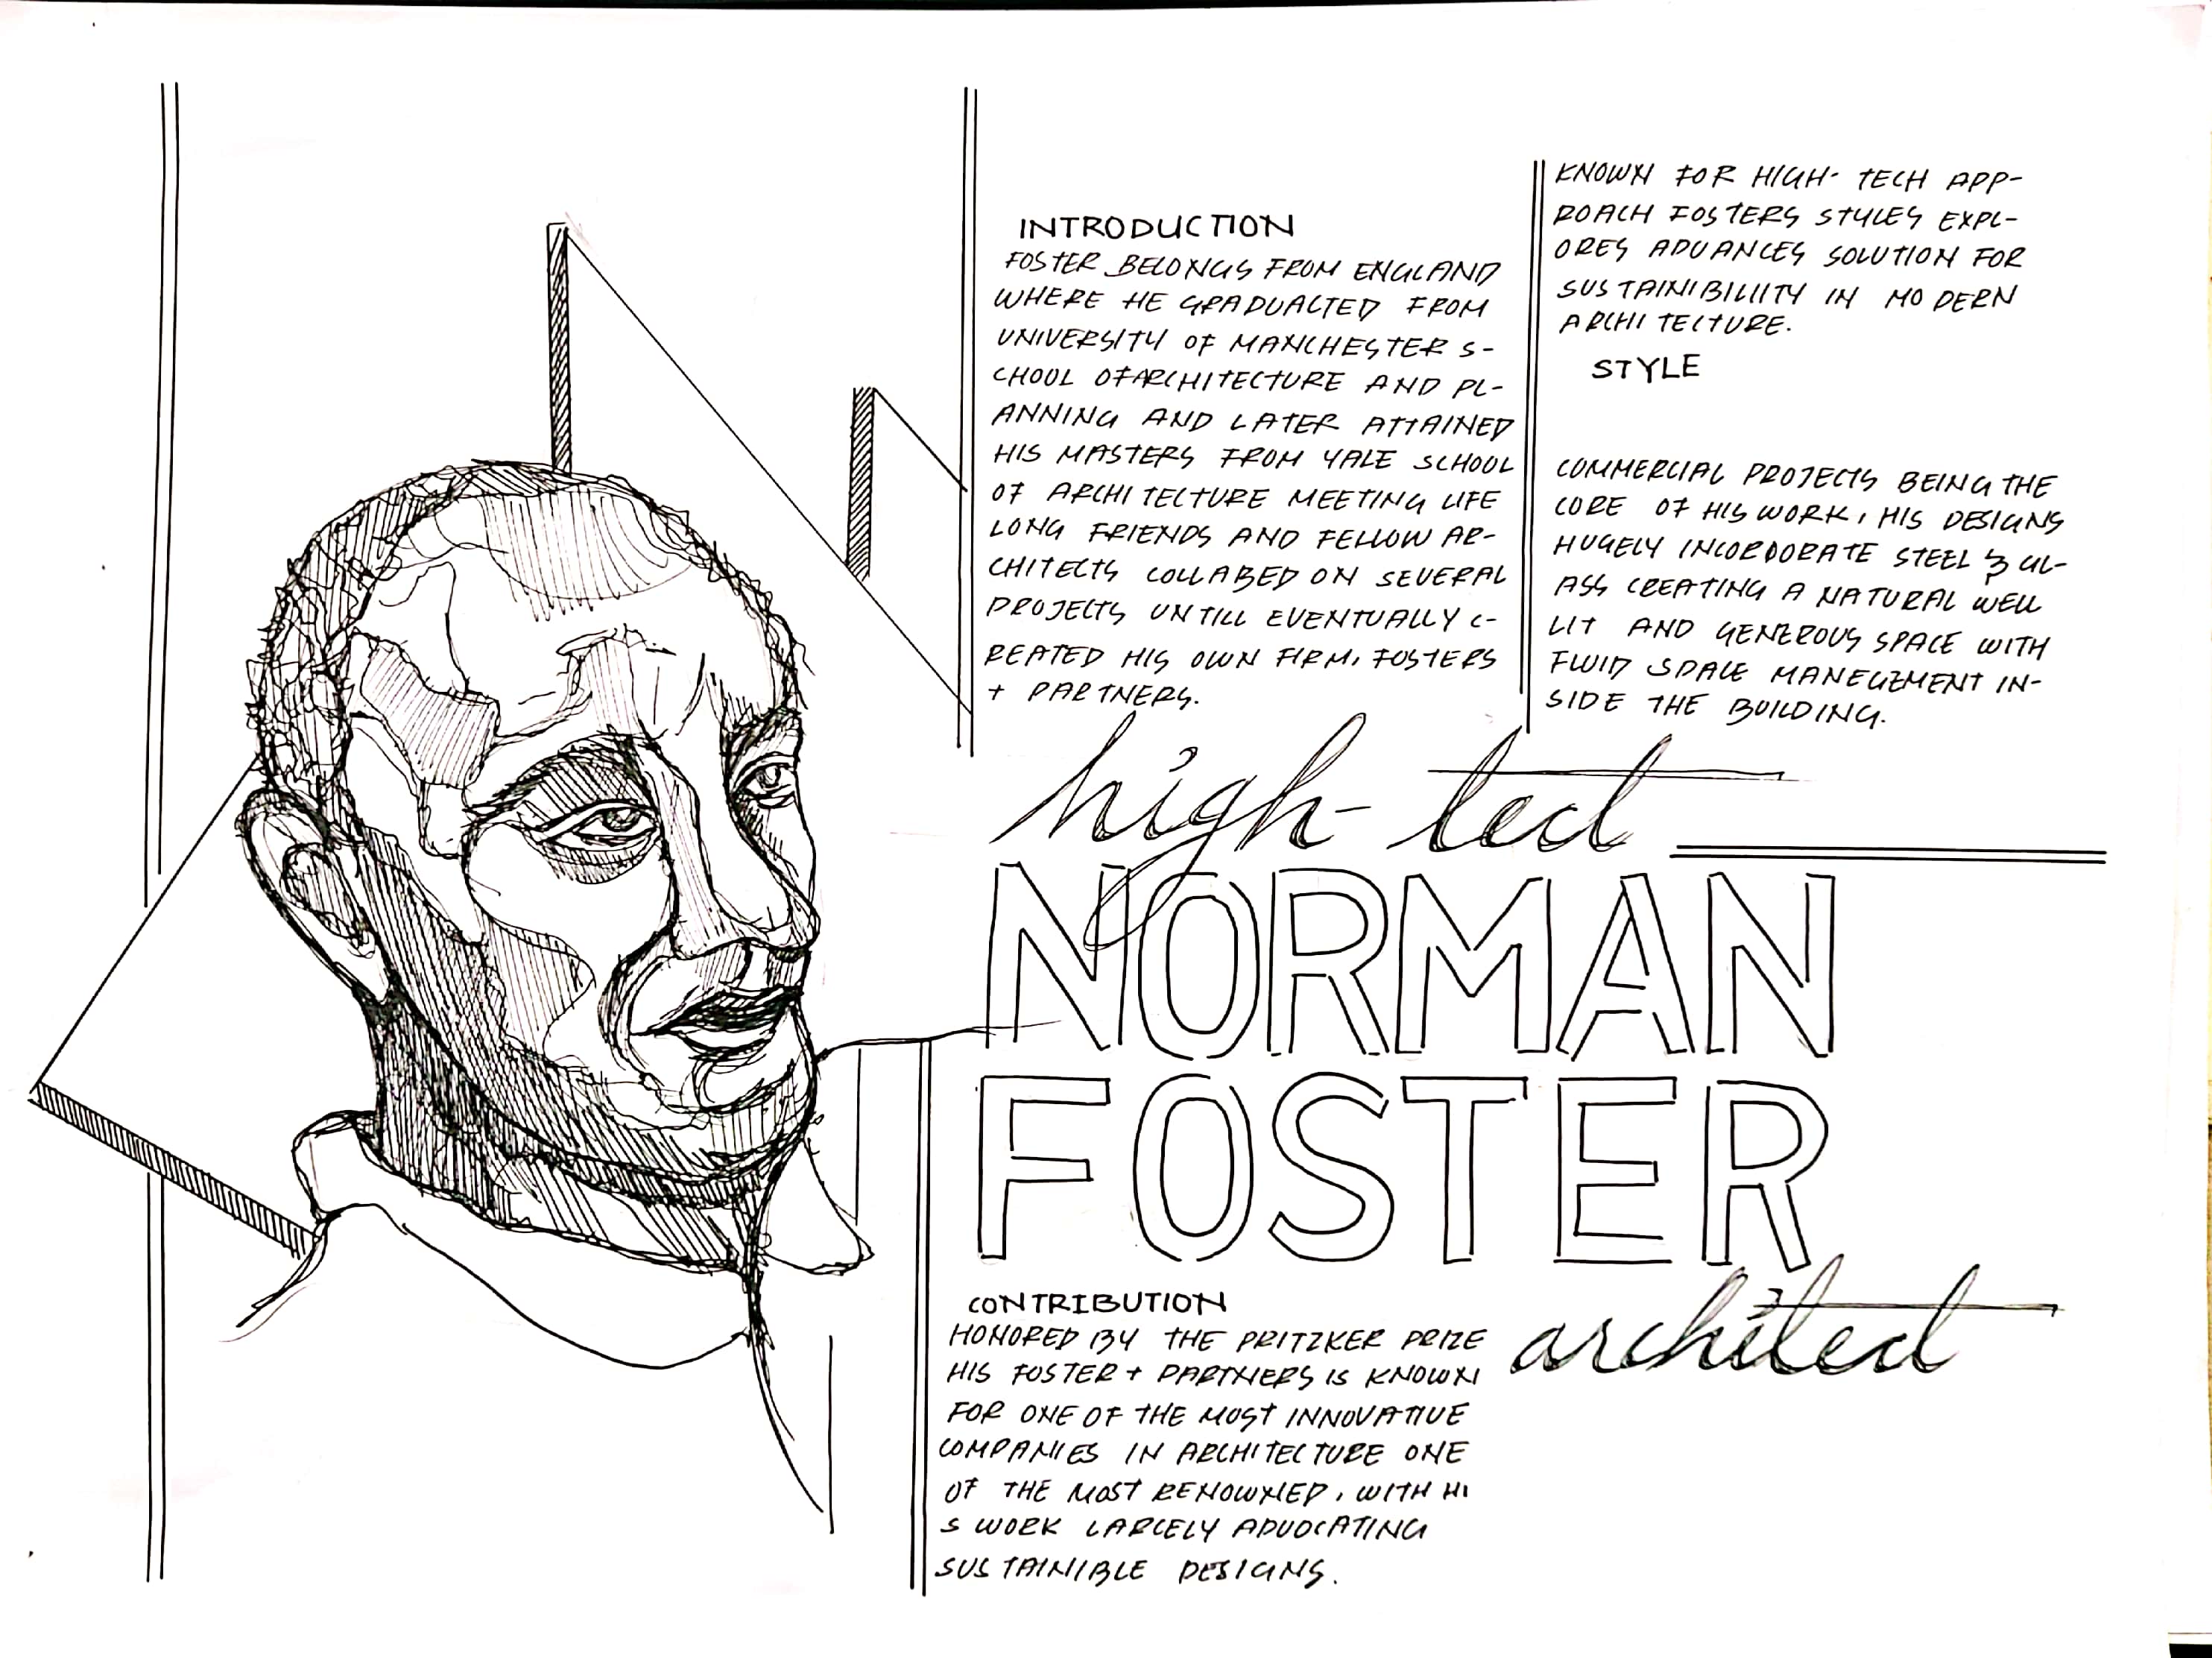 INTRODUCTION
FOSTER BELONGS FROM ENGLAND
WHERE HE GRADUALTED FROM
UNIVERSITY OF MANCHESTER S-
CHOOL OF ARCHITECTURE AND PL-
ANNING AND LATER ATTAINED
HIS MASTERS FROM YALE SCHOOL
OF ARCHITECTURE MEETING LIFE
LONG FRIENDS AND FELLOW AR-
CHITECTS COLLABED ON SEVERAL
PROJECTS UNTILL EVENTUALLY C-
REATED HIS OWN FIRM, FOSTERS
+ PARTNERS.
KNOWN FOR HIGH-TECH APP-
ROACH FOSTERS STYLES EXPL-
ORES ADVANCES SOLUTION FOR
SUSTAINIBILIITY IN MODERN
ARCHITECTURE.
STYLE
COMMERCIAL PROJECTS BEING THE
CORE OF HIS WORK, HIS DESIGNS
HUGELY INCORDORATE STEEL & GL-
ASS CREATING A NATURAL WELL
LIT AND GENEROUS SPACE WITH
FLUID SPACE MANEGEMENT IN-
SIDE THE BUILDING.
high-tech
NORMAN
FOSTER
architect
CONTRIBUTION
HONORED BY THE PRITZKER PRIZE
HIS FOSTER + PARTNERS IS KNOWN
FOR ONE OF THE MOST INNOVATIVE
COMPANIES IN ARCHITECTURE ONE
OF THE MOST RENOWNED, WITH HI
S WORK LARGELY ADVOCATING
SUSTAINIBLE DESIGNS.